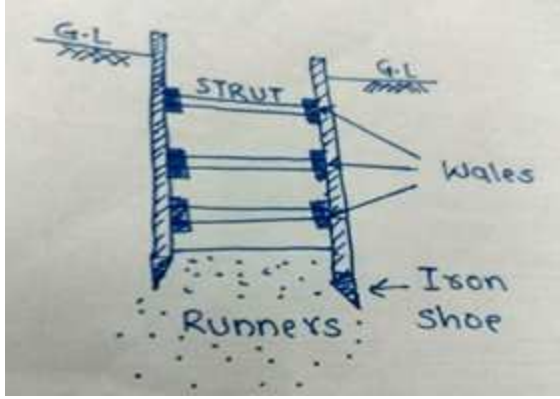 G.L
STRUT
G.L
Wales
Iron
Shoe
Runners